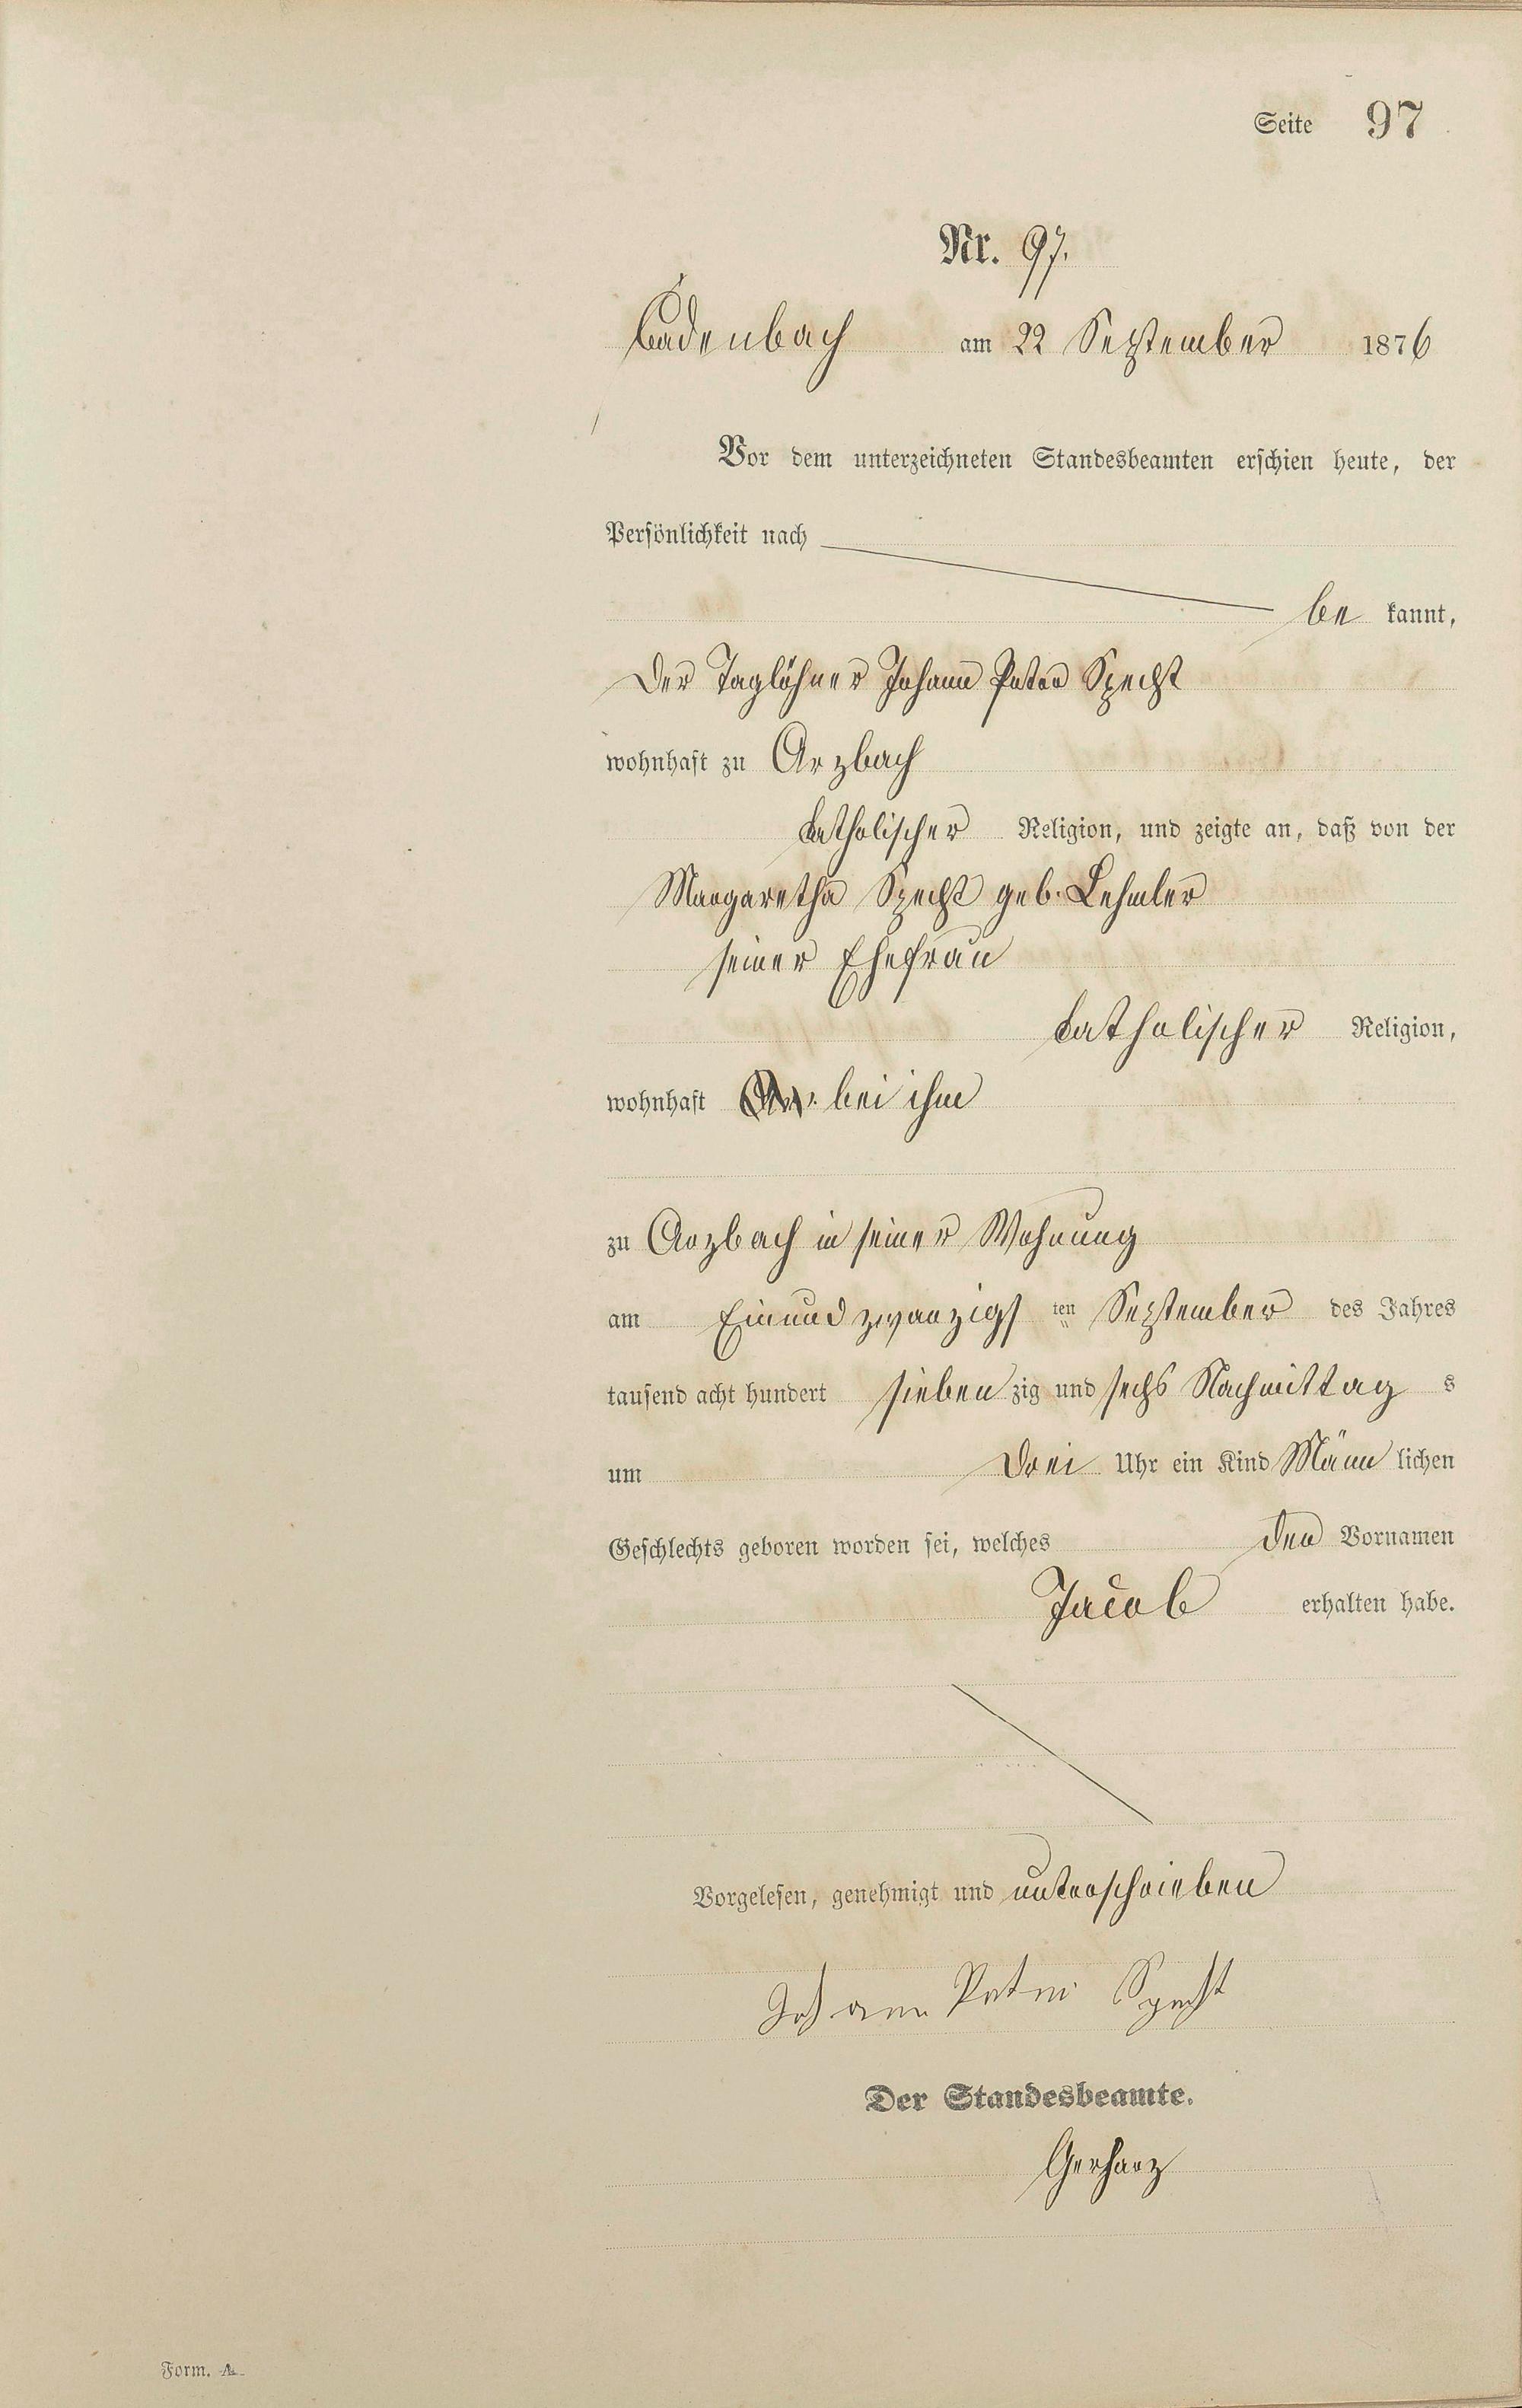 Seite 97
Nr. 97.
Cadenbach am 22 September 1876
Vor dem unterzeichneten Standesbeamten erschien heute, der
Persönlichkeit nach
be kannt,
der Taglöhner Johann Peter Specht
wohnhaft zu Arzbach
katholischer Religion, und zeigte an, daß von der
Margaretha Specht geb. Lehmler
seiner Ehefrau
katholischer Religion,
wohnhaft bei ihm
zu Arzbach in seiner Wohnung
am Einundzwanzigs ten September des Jahres
tausend acht hundert sieben zig und sechs Nachmittag s
um drei Uhr ein Kind Männ lichen
Geschlechts geboren worden sei, welches den Vornamen
Jacob erhalten habe.
Vorgelesen, genehmigt und unterschrieben
Johann Peter Specht
Der Standesbeamte.
Gerharz
Form. A.